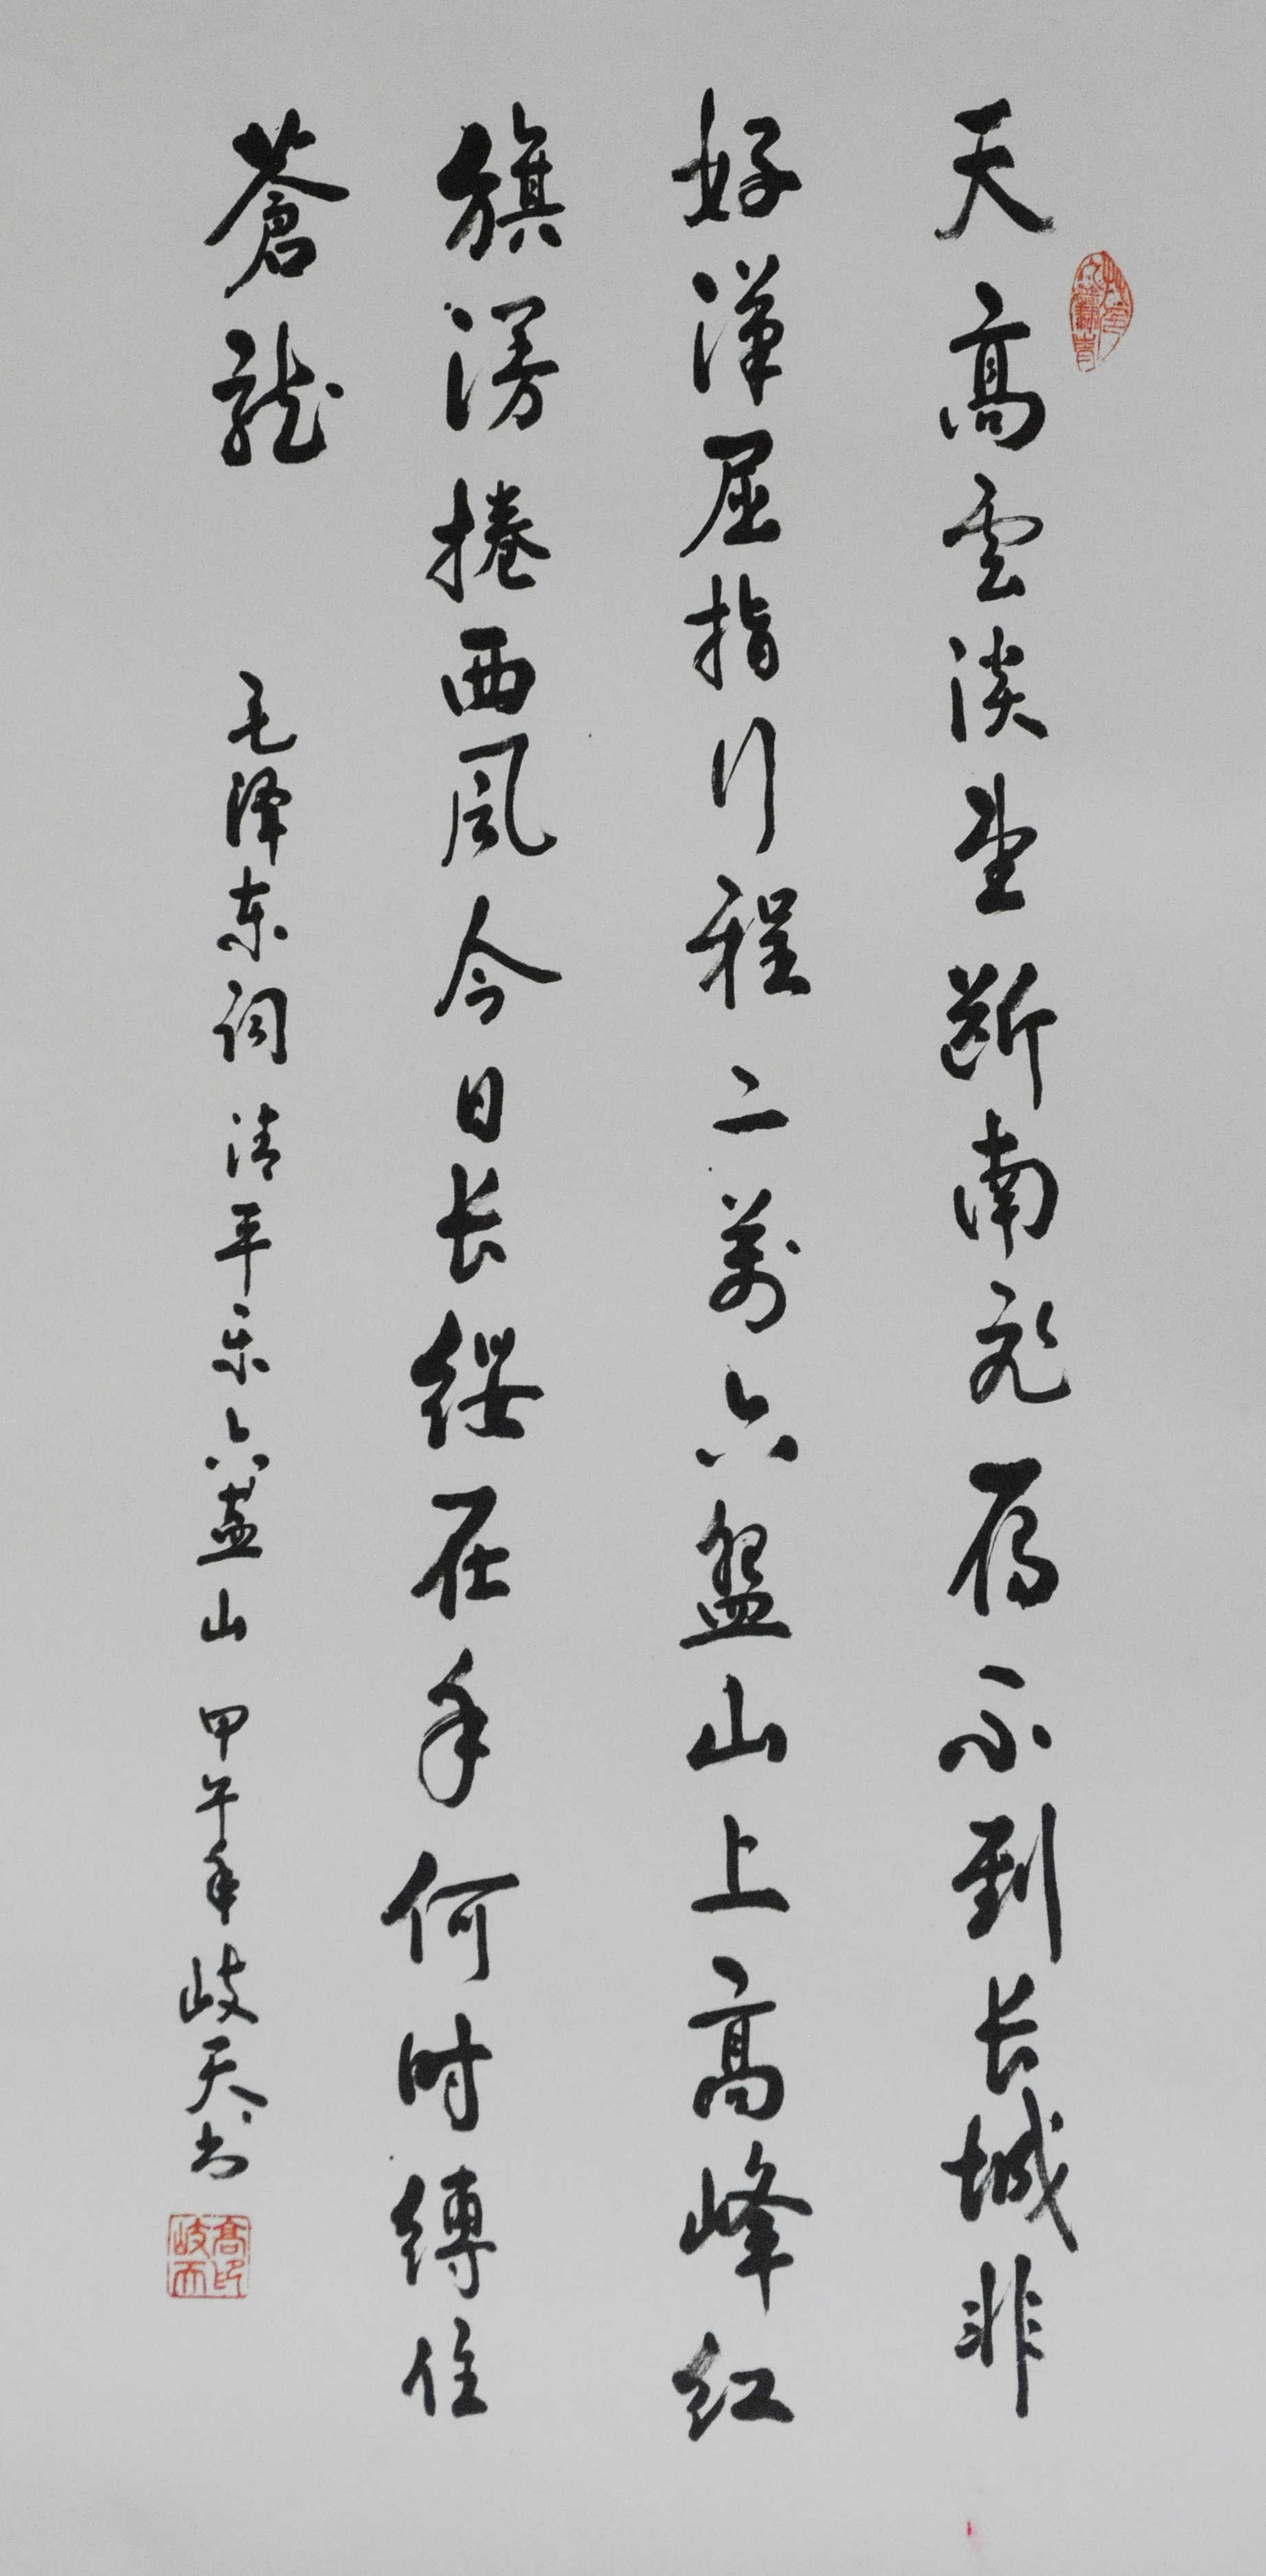 天高雲淡望断南飛雁不到长城非
好漢屈指行程二萬六盤山上高峰红
旗漫捲西风今日长缨在手何时缚住
蒼龙
毛泽东词清平乐六盘山甲午年歧天书
高歧天印